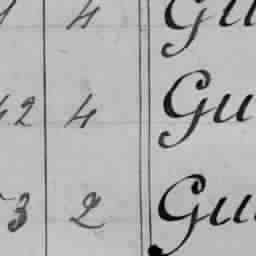 4 Gu
42 4 Gu
3 2 Gu